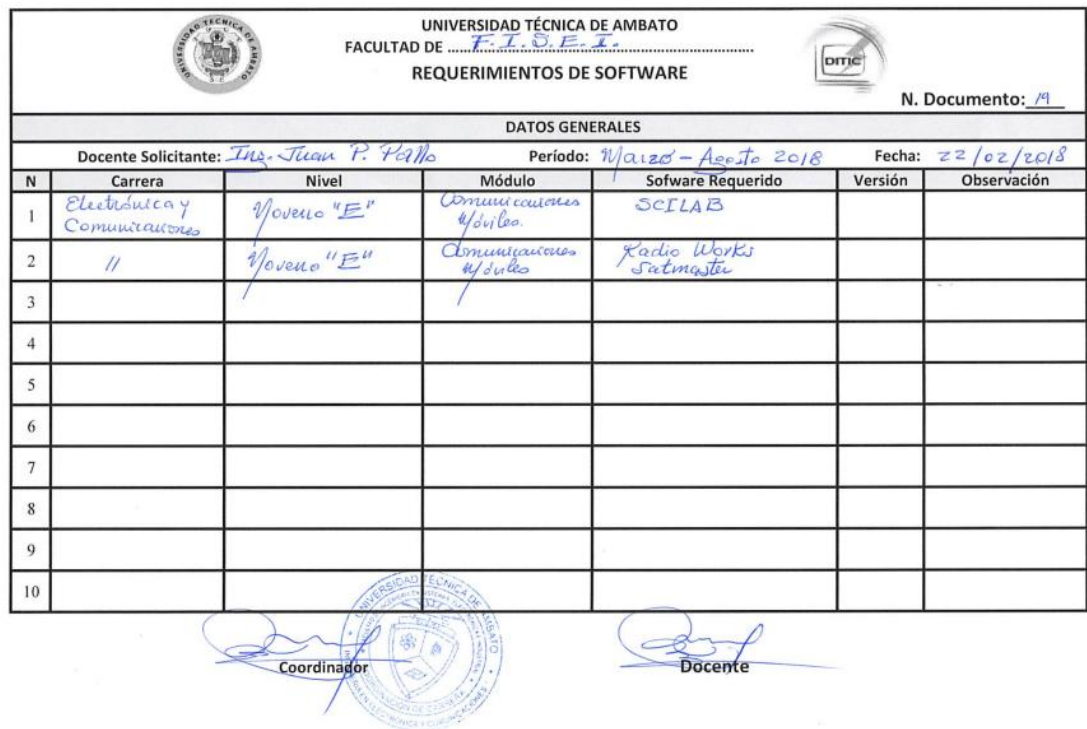 UNIVERSIDAD TÉCNICA DE AMBATO
FACULTAD DE F.I.S.E.I.
REQUERIMIENTOS DE SOFTWARE
UNIVERSIDAD TECNICA DE AMBATO
DITIC
N. Documento: 19
DATOS GENERALES
Docente Solicitante: Ing. Juan P. Pallo Período: Marzo - Agosto 2018 Fecha: 22/02/2018
N Carrera Nivel Módulo Sofware Requerido Versión Observación
1 Electrónica y Comunicaciones Noveno "E" Comunicaciones Móviles. SCILAB
2 // Noveno "E" Comunicaciones Móviles Radio Works Satmaster
3
4
5
6
7
8
9
10
Coordinador Docente
UNIVERSIDAD TÉCNICA DE AMBATO
COORDINACIÓN DE CARRERA